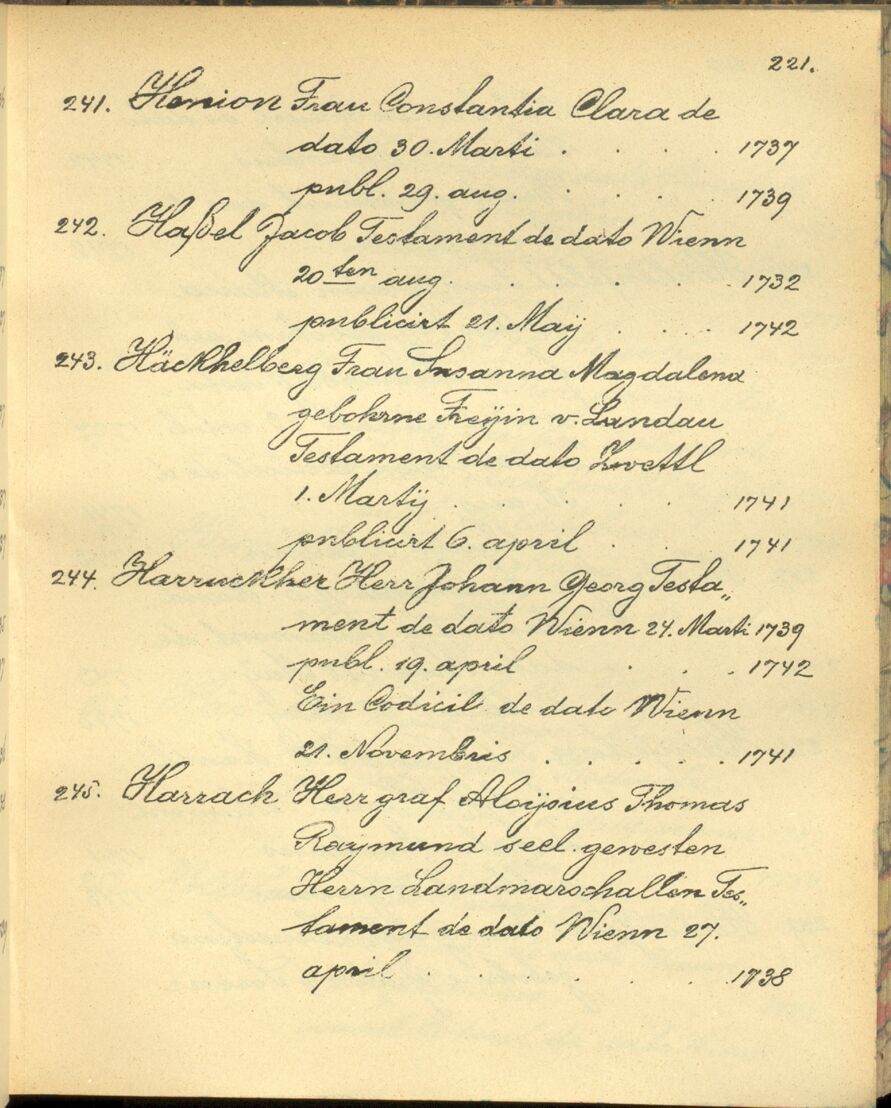 221.
241. Henion Frau Constantia Clara de
dato 30. Marti . . . . 1737
publ. 29. aug. . . . . 1739
242. Haßel Jacob Testament de dato Wienn
20ten aug. . . . . . 1732
publicirt 21. Maÿ . . . . 1742
243. Häckhelberg Frau Susanna Magdalena
gebohrne Freÿin v. Landau
Testament de dato Zwettl
1. Martÿ . . . . . 1741
publicirt 6. april . . . 1741
244. Harruckher Herr Johann Georg Testa„
ment de dato Wienn 24. Marti 1739
publ. 19. april . . . 1742
Ein Codicil de dato Wienn
21. Novembris . . . . . 1741
245. Harrach Herr graf Aloÿsius Thomas
Raymund seel. gewesten
Herrn Landmarschallen Tes„
tament de dato Wienn 27.
april . . . . . . 1738